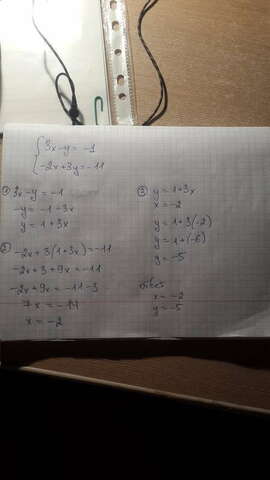 {3x-y=-1
-2x+3y=-11
① 3x-y=-1
-y=-1-3x
y=1+3x
② -2x+3(1+3x)=-11
-2x+3+9x=-11
-2x+9x=-11-3
7x=-14
x=-2
③ y=1+3x
x=-2
y=1+3(-2)
y=1+(-6)
y=-5
x=-2
y=-5